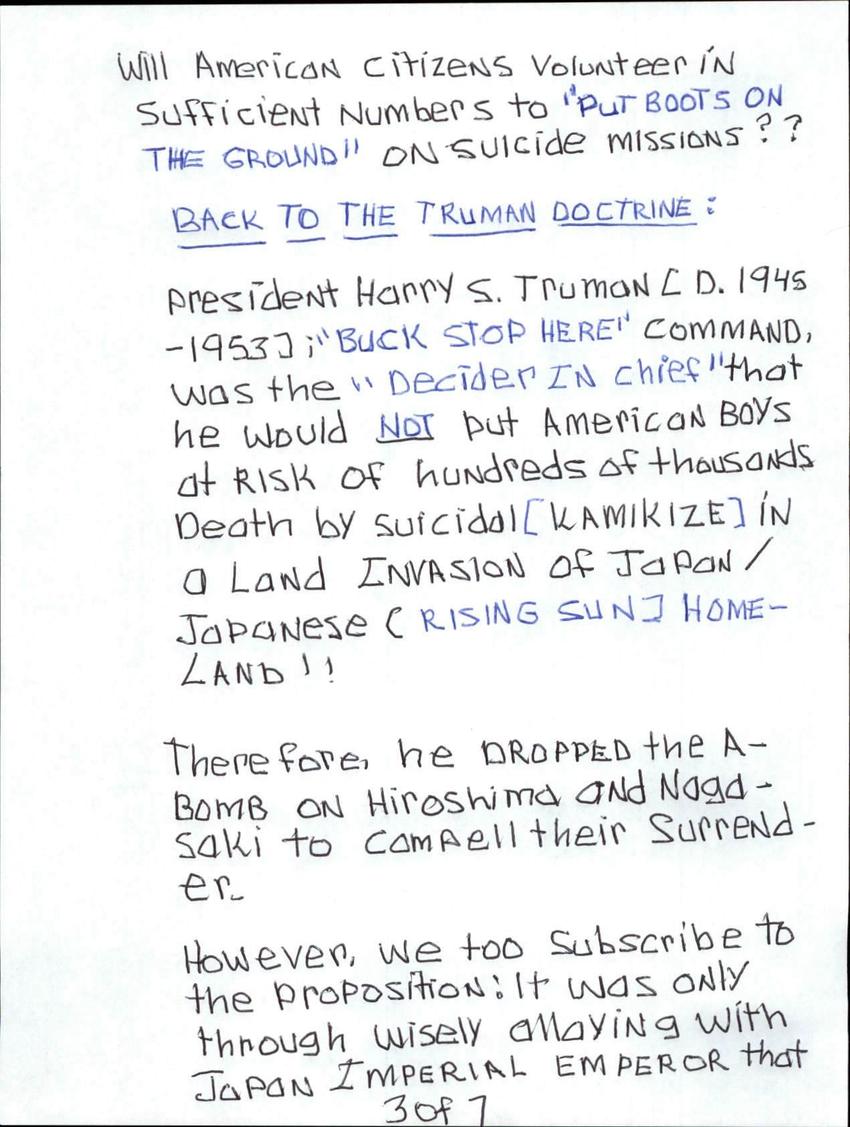 Will American Citizens Volunteer in
Sufficient Numbers to "PUT BOOTS ON
THE GROUND" ON Suicide MISSIONS ??
BACK TO THE TRUMAN DOCTRINE:
President Harry S. Truman [D. 1945
-1953]; "BUCK STOP HERE" COMMAND,
was the "Decider IN Chief" that
he would NOT put American BOYS
at RISK OF hundreds of thousands
Death by suicidal [KAMIKIZE] IN
a Land INVASION OF JAPAN/
JAPANese (RISING SUN] HOME-
LAND !!
Therefore, he DROPPED the A-
BOMB ON Hiroshima and Naga-
saki to compell their Surrend-
er.
However, we too Subscribe to
the Proposition: It was only
through wisely allaying with
JAPAN IMPERIAL EMPEROR that
3 of 7